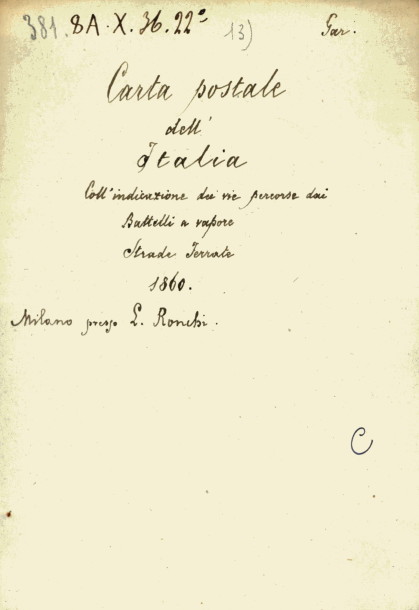 381. 8A.X.36.22° 13) Gar.
Carta postale
dell'
Italia
Coll'indicazione dei vie percorse dai
Battelli a vapore
Strade Ferrate
1860.
Milano presso L. Ronchi.
C